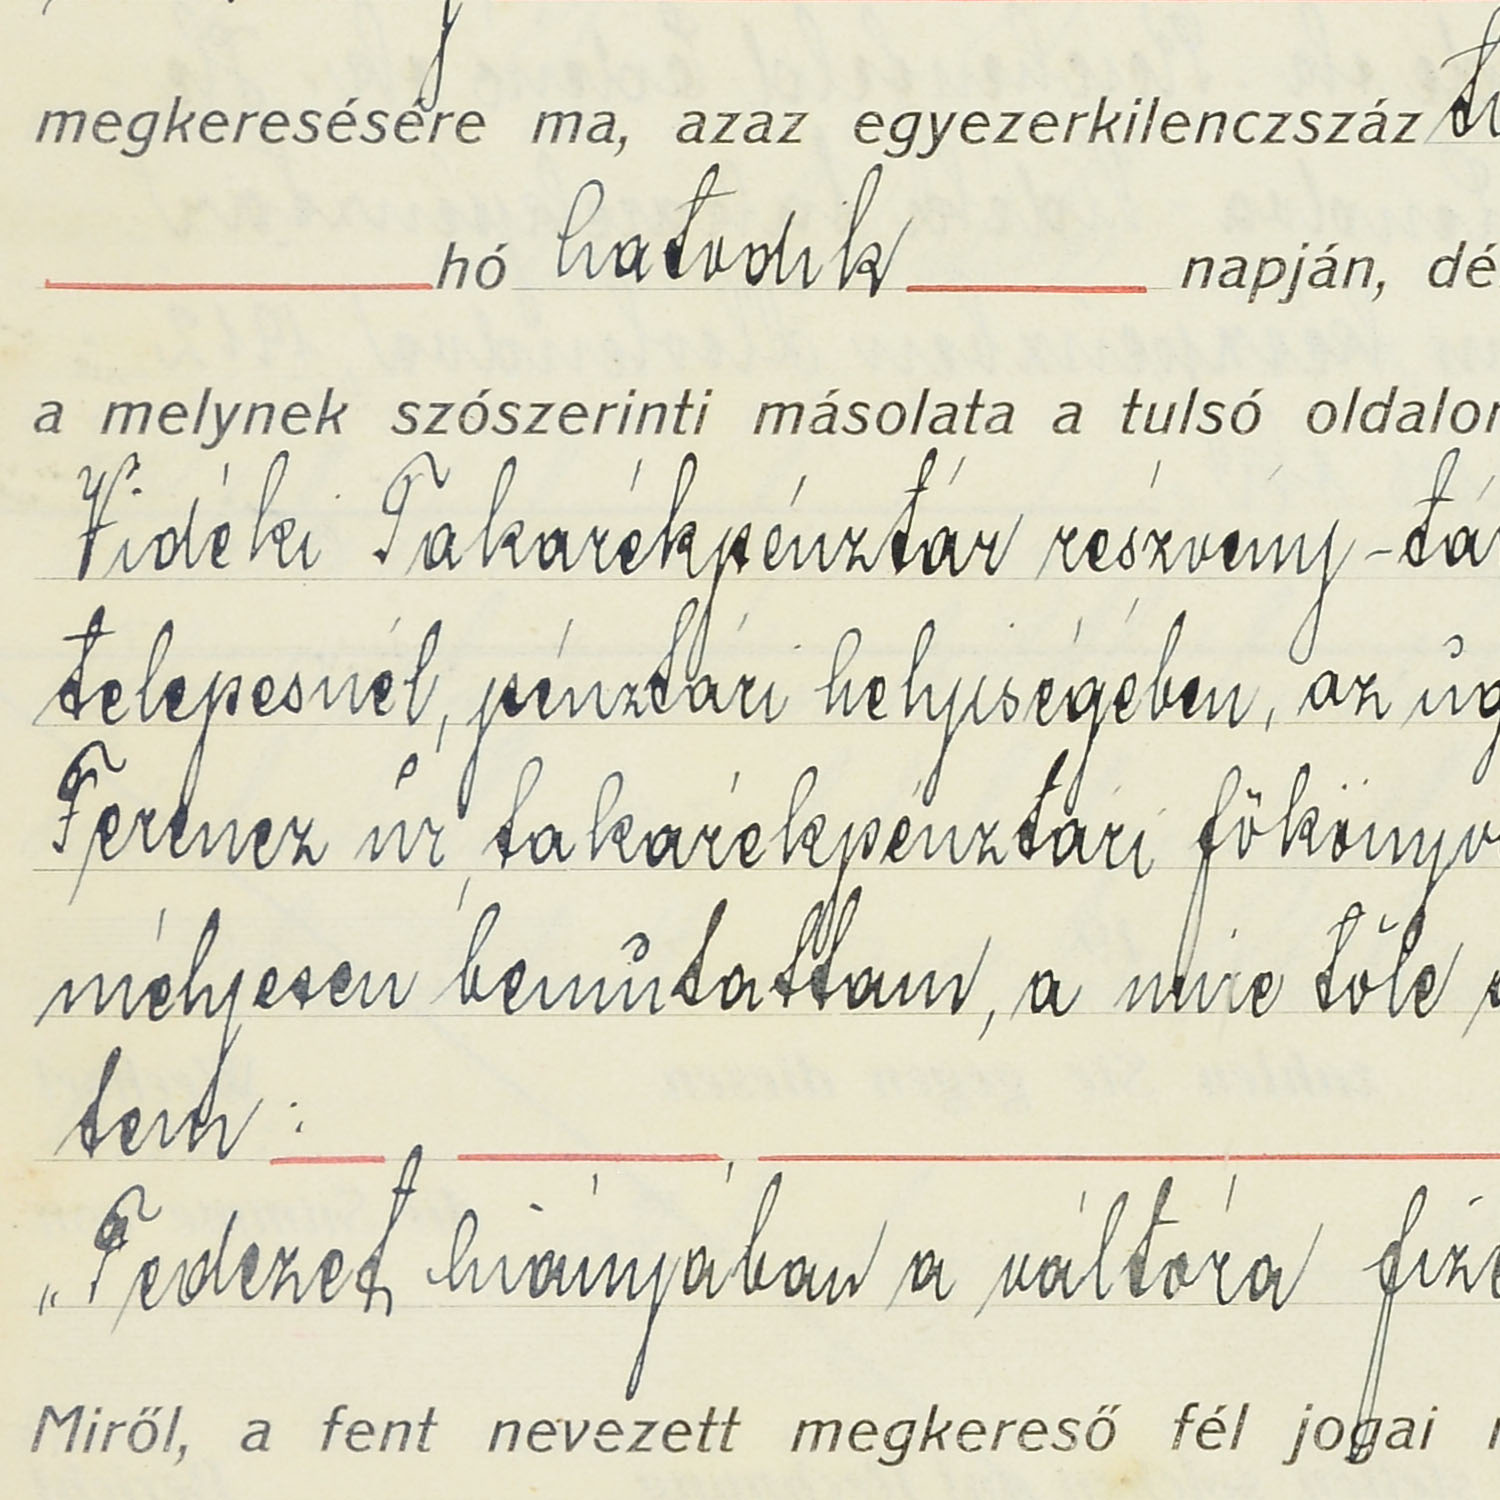 megkeresésére ma, azaz egyezerkilenczszáz
hó hatodik napján, dé
a melynek szószerinti másolata a tulsó oldalon
Vidéki Takarékpénztár részvény-tár
telepesnél, pénztári helyiségében, az üg
Ferencz úr, takarékpénztári főköny
mélyesen bemutattam, a mire tőle
tem :
„Fedezet hiányában a váltóra fize
Miről, a fent nevezett megkereső fél jogai